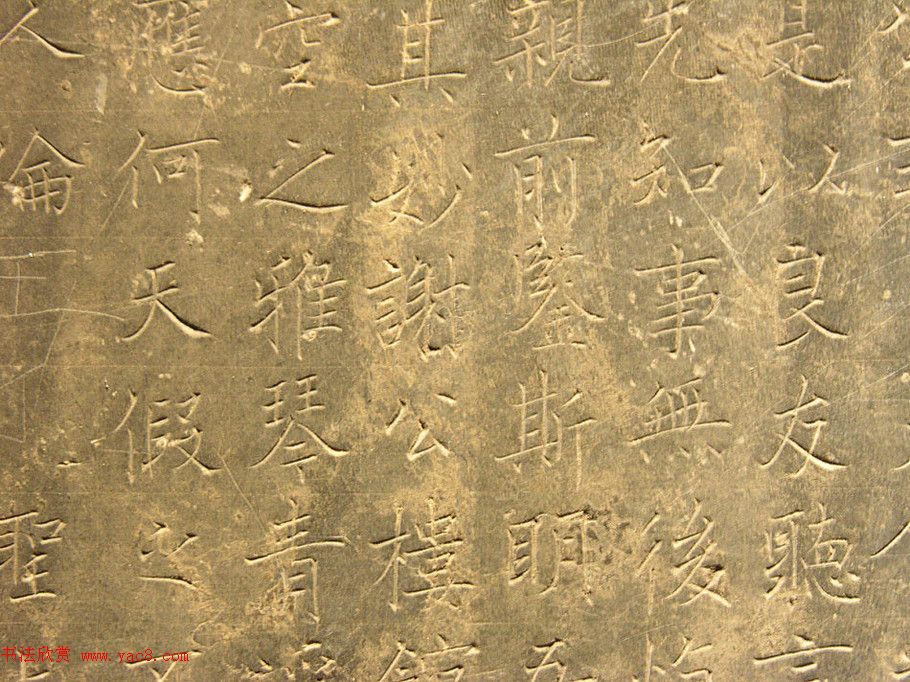 是以良友聽言
先知事無後
親前鑒斯明
其妙謝公樓館
空之雅琴青
應何天假之
人倫聖
书法欣赏 www.yac8.com